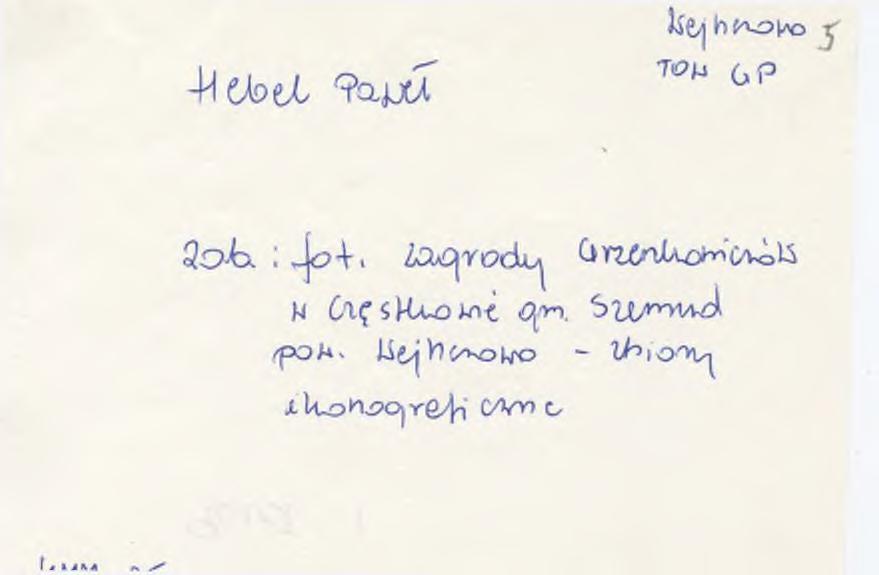 Wejherowo 5
TOW GP
Hebel Paweł
Zob: fot. zagrody Grzenkowiczów
w Częstkowie gm. Szemud
pow. Wejherowo - zbiory
ikonograficzne